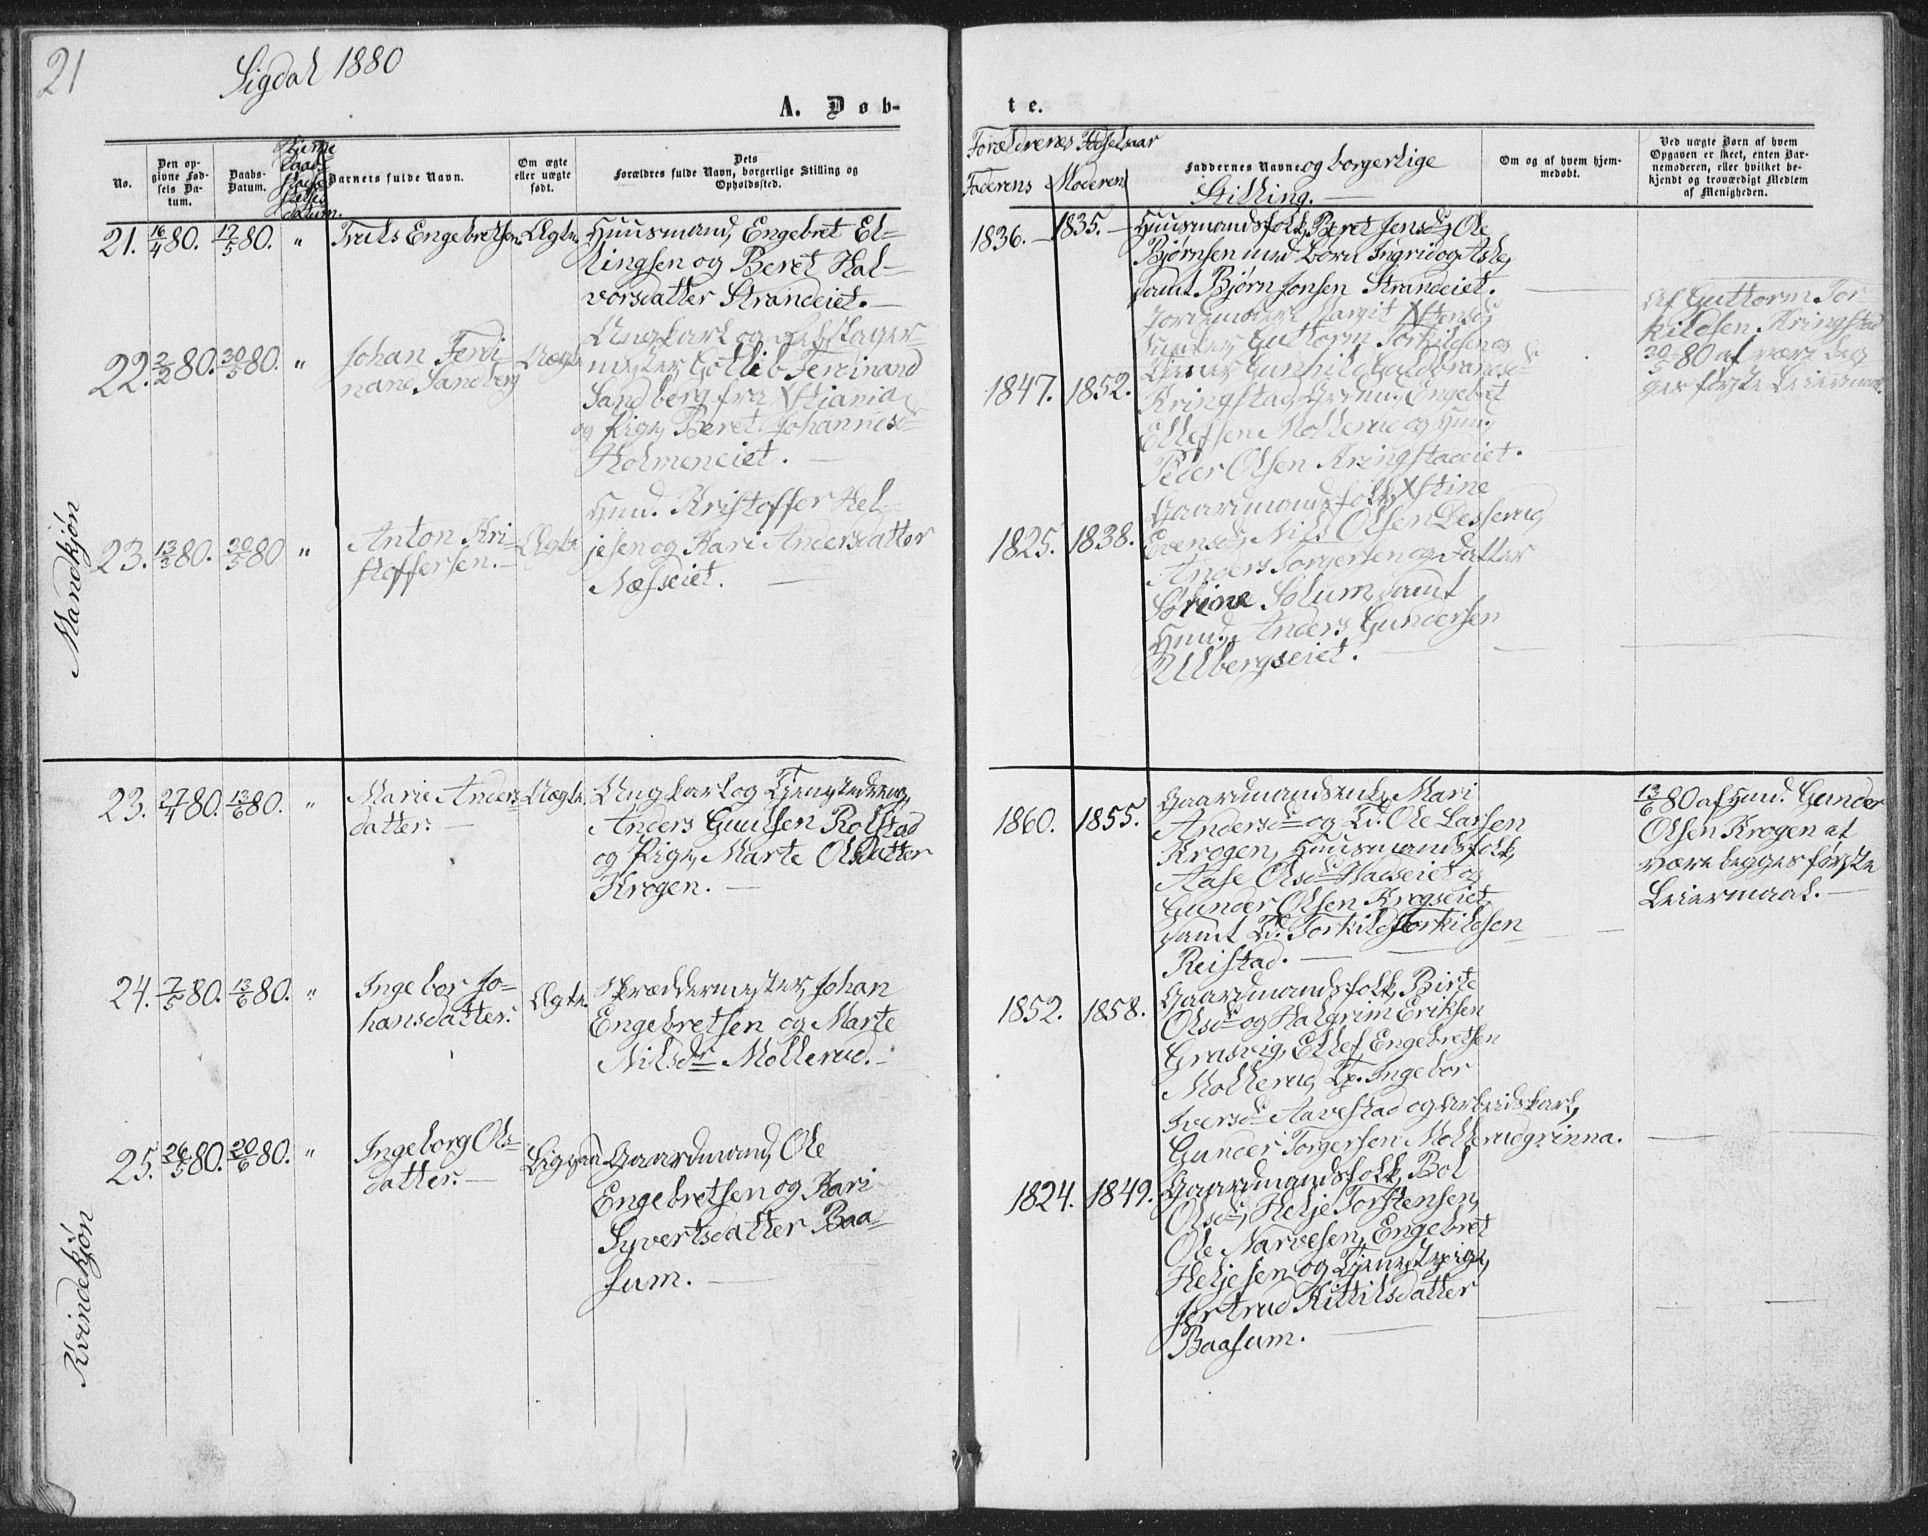 21
Sigdal 1880
A. Døb-
te.
No.
Den opgivne Fødsels Datum.
Daabs-Datum.
Hjemmedaabs Stadfæstelses datum.
Barnets fulde Navn.
Om ægte eller uægte født.
Dets Forældres fulde Navn, borgerlige Stilling og Opholdssted.
Forældrenes Fødselsaar
Faderens Moderens
Faddernes Navne og borgerlige
Stilling.
Om og af hvem hjemmedøbt.
Ved uægte Børn af hvem Opgaven er skeet, enten Barnemoderen, eller hvilket bekjendt og troværdigt Medlem af Menigheden.
Mandkjøn
21. 16/4 80. 17/5 80. " Truls Engebretsen Ægte
Huusmand, Engebret El-
lingsen og Beret Hal-
vorsdatter Strandeiet. —
1836. — 1835. —
Huusmandsfolk, Beret Jensd., Ole
Bjørnsen med børn Ingrid og Asle,
samt Bjørn Jonsen Strandeiet.
22. 2/2 80. 30/5 80. " Johan Ferdi-
nand Sandberg Uægte
Ungkarl og
Gottlieb Ferdinand
Sandberg fra Xstiania
og Pige, Beret Johannesd.
Holmeneiet. —
1847. 1852.
Jordmoder Margit
Guttorm Torkildsen og
Gunhild Guldbrandsd.
Kringstad, Grdmd. Engebret
Ellefsen Mollerud og Hmd.
Peder Olsen Kringstadeiet.
Af Guttorm Tor-
kildsen Kringstad
30/5 80 at være beg
ges første Leiermaal.
23. 13/3 80. 30/5 80 " Anton Kri-
stoffersen. — Ægte
Hmd. Kristoffer Hel-
jesen og Kari Andersdatter
Næsseiet. —
1825. 1838.
Gaardmandsfolk, Xstine
Evensd., Nils Olsen Besserud,
Anders Torgersen og Datter
Sørine Solum, samt
Hmd. Anders Gundersen
Ulbergseiet. —
Kvindekjøn
23. 27/4 80. 13/6 80. " Marie Anders-
datter. — Uægte.
Ungkarl og Tjenstedreng,
Anders Gulsen Rolstad
og Pige, Marte Olsdatter
Krogen. —
1860. 1855.
Gaardmandsenke, Mari
Andersd. og U. Ole Larsen
Krogen, Huusmandsfolk,
Aase Olsd. Hadseiet og
Gunder Olsen Krogseiet,
samt U. Torkild Torkildsen
Reistad. —
13/6 80 af Hmd. Gunder
Olsen Krogen at
være begges første
Leiermaal. —
24. 7/5 80. 13/6 80. " Ingebor Jo-
hansdatter. Ægte.
Skræddermester, Johan
Engebretsen og Marte
Nilsdr. Mollerud. —
1852. 1858.
Gaardmandsfolk, Birte
Olsd. og Halgrim Eriksen
Grasvig, Ellef Engebretsen
Mollerud, Tp. Ingebor
Iversd. Aavestad og Arbeidskarl,
Gunder Torgersen Mollerudgrinna.
25. 26/5 80. 20/6 80. " Ingeborg Ols-
datter. — Ligsaa
Gaardmand, Ole
Engebretsen og Kari
Syvertsdatter Baa-
sum. —
1824. 1849.
Gaardmandsfolk, Bol
Olsd., Helje Torstensen,
Ole Narvesen, Engebret
Heljesen og Tjenstepige,
Jertrud Kittilsdatter
Baasum. —